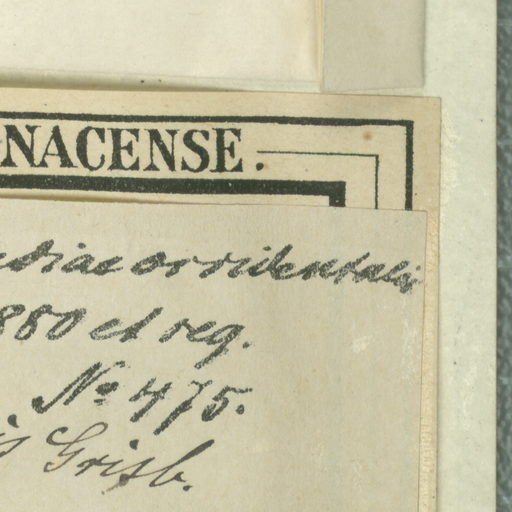 NACENSE.
ndiae occidentalis
880 et reg.
No 475.
is Griseb.